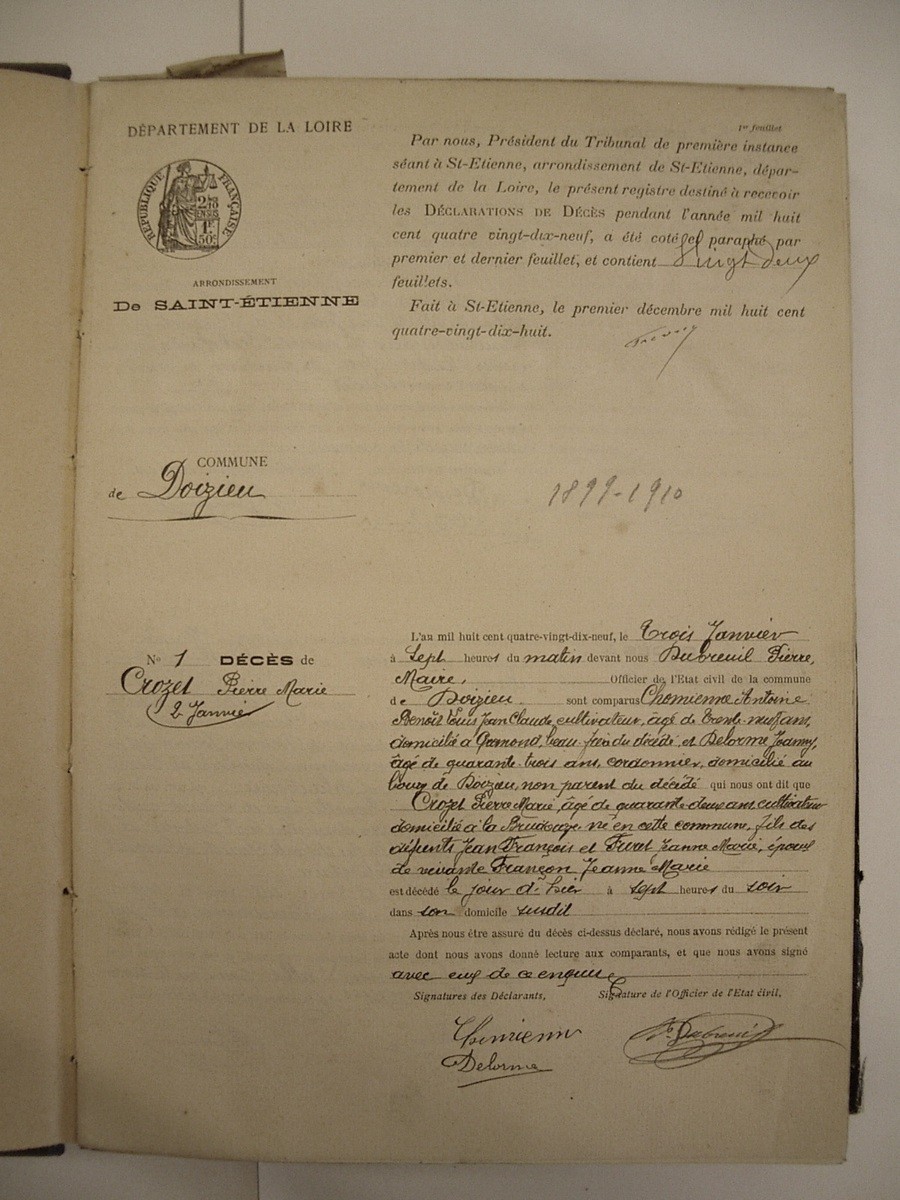 DÉPARTEMENT DE LA LOIRE
RÉPUBLIQUE FRANÇAISE
2/10 EN SUS
1F.
50c.
ARRONDISSEMENT
De SAINT-ÉTIENNE
1er feuillet
Par nous, Président du Tribunal de première instance
séant à St-Etienne, arrondissement de St-Etienne, dépar-
tement de la Loire, le présent registre destiné à recevoir
les DÉCLARATIONS DE DÉCÈS pendant l'année mil huit
cent quatre vingt-dix-neuf, a été coté et paraphé par
premier et dernier feuillet, et contient Vingt Deux
feuillets.
Fait à St-Etienne, le premier décembre mil huit cent
quatre-vingt-dix-huit.
COMMUNE
de Doizieu
1899-1910
No 1 DÉCÈS de
Crozet Pierre Marie
2 Janvier
L'an mil huit cent quatre-vingt-dix-neuf, le Trois Janvier
à Sept heures du matin devant nous Dubreuil Pierre,
Maire, Officier de l'Etat civil de la commune
de Doizieu sont comparus Chomienne Antoine
Benoît Louis Jean Claude, cultivateur, âgé de trente-neuf ans,
domicilié à beau-frère du décédé et Delorme Joanny,
âgé de quarante trois ans, cordonnier, domicilié au
bourg de Doizieu, non parent du décédé qui nous ont dit que
Crozet Pierre Marie, âgé de quarante-deux ans, cultivateur
domicilié à la né en cette commune, fils des
défunts Jean François et Jeanne Marie, époux
de vivante Françon Jeanne Marie
est décédé le jour d'hier à sept heures du soir
dans son domicile susdit
Après nous être assuré du décès ci-dessus déclaré, nous avons rédigé le présent
acte dont nous avons donné lecture aux comparants, et que nous avons signé
avec eux de ce enquis
Signatures des Déclarants,
Signature de l'Officier de l'Etat civil,
Chomienne
Delorme
P. Dubreuil